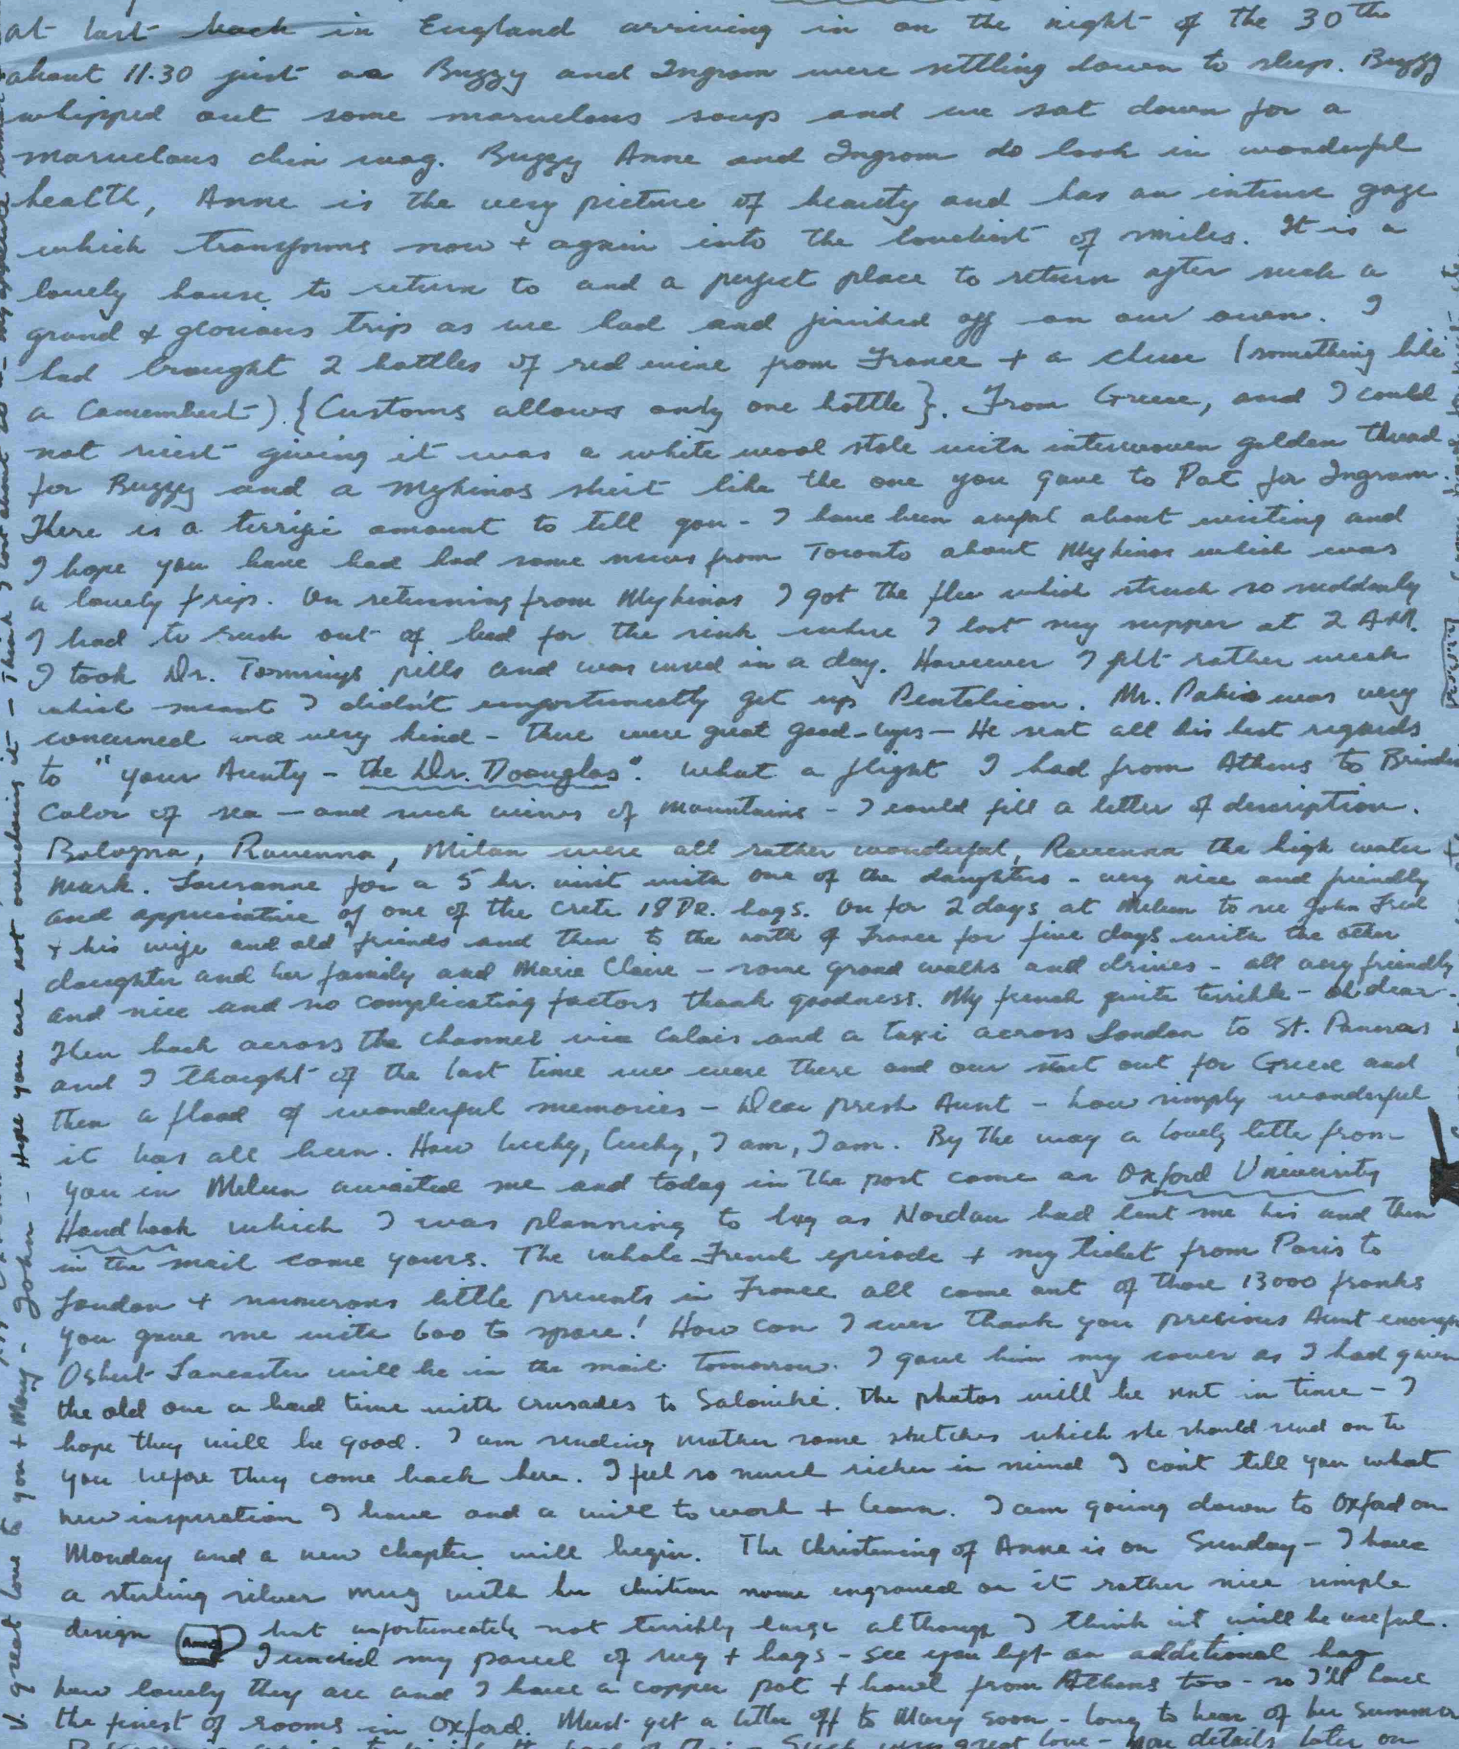 at last back in England arriving in on the night of the 30th
about 11.30 just as Buzzy and Ingram were settling down to sleep. Buzzy
whipped out some marvelous soup and we sat down for a
marvelous chin wag. Buzzy Anne and Ingram do look in wonderful
health, Anne is the very picture of beauty and has an intense gaze
which transforms now + again into the loveliest of smiles. It is a
lovely house to return to and a perfect place to return after such a
grand & glorious trip as we had and finished off on our own. I
had brought 2 bottles of red wine from France + a cheese (something like
a Camembert). {Customs allows only one bottle}. From Greece, and I could
not resist giving it was a white wool stole with interwoven golden thread
for Buzzy and a Mykinos shirt like the one you gave to Pat for Ingram.
There is a terrific amount to tell you - I have been awful about writing and
I hope you have had had some news from Toronto about Mykinos which was
a lovely trip. On returning from Mykinos I got the flu which struck so suddenly
I had to rush out of bed for the sink where I lost my supper at 2 AM.
I took Dr. Tommings pills and was cured in a day. However I felt rather weak
which meant I didn't unfortunately get up Pentelicon. Mr. Pakis was very
concerned and very kind - there were great good-byes - He sent all his best regards
to "your Aunty - the Dr. Doouglas". What a flight I had from Athens to Brindisi
Color of sea - and such views of mountains - I could fill a letter of description.
Bologna, Ravenna, Milan were all rather wonderful, Ravenna the high water
mark. Lausanne for a 5 hr. visit with one of the daughters - very nice and friendly
and appreciative of one of the Crete 18 DR. bags. On for 2 days at Melun to see John Fred
& his wife and old friends and then to the north of France for five days with the other
daughter and her family and Marie Claire - some grand walks and drives - all very friendly
and nice and no complicating factors thank goodness. My french quite terrible - oh dear.
Then back across the channel via Calais and a taxi across London to St. Pancras
and I thought of the last time we were there and our start out for Greece and
then a flood of wonderful memories - Dear presh Aunt - how simply wonderful
it has all been. How lucky, lucky, I am, I am. By the way a lovely lette from
you in Melun awaited me and today in the post came an Oxford University
Handbook which I was planning to buy as Nordau had lent me his and then
in the mail came yours. The whole French episode + my ticket from Paris to
London + numerous little presents in France all came out of those 13000 franks
you gave me with 600 to spare! How can I ever thank you precious Aunt enough
Osbert Lancaster will be in the mail tomorrow. I gave him my cover as I had given
the old one a hard time with crusades to Salonika. The photos will be sent in time - I
hope they will be good. I am sending mother some sketches which she should send on to
you before they come back here. I feel so much richer in mind I can't tell you what
new inspiration I have and a will to work + learn. I am going down to Oxford on
Monday and a new chapter will begin. The Christening of Anne is on Sunday - I have
a sterling silver mug with her christian name engraved on it rather nice simple
design Anne but unfortunately not terribly large although I think it will be useful.
I my parcel of rug + bags - see you left an additional bag
how lovely they are and I have a copper pot + bowl from Athens too - so I'll have
the finest of rooms in Oxford. Must get a letter off to Mary soon - long to hear of her summer
great love - details later on
V. great love to you + Mary - John - Hope you are not overdoing it - Think I lost about